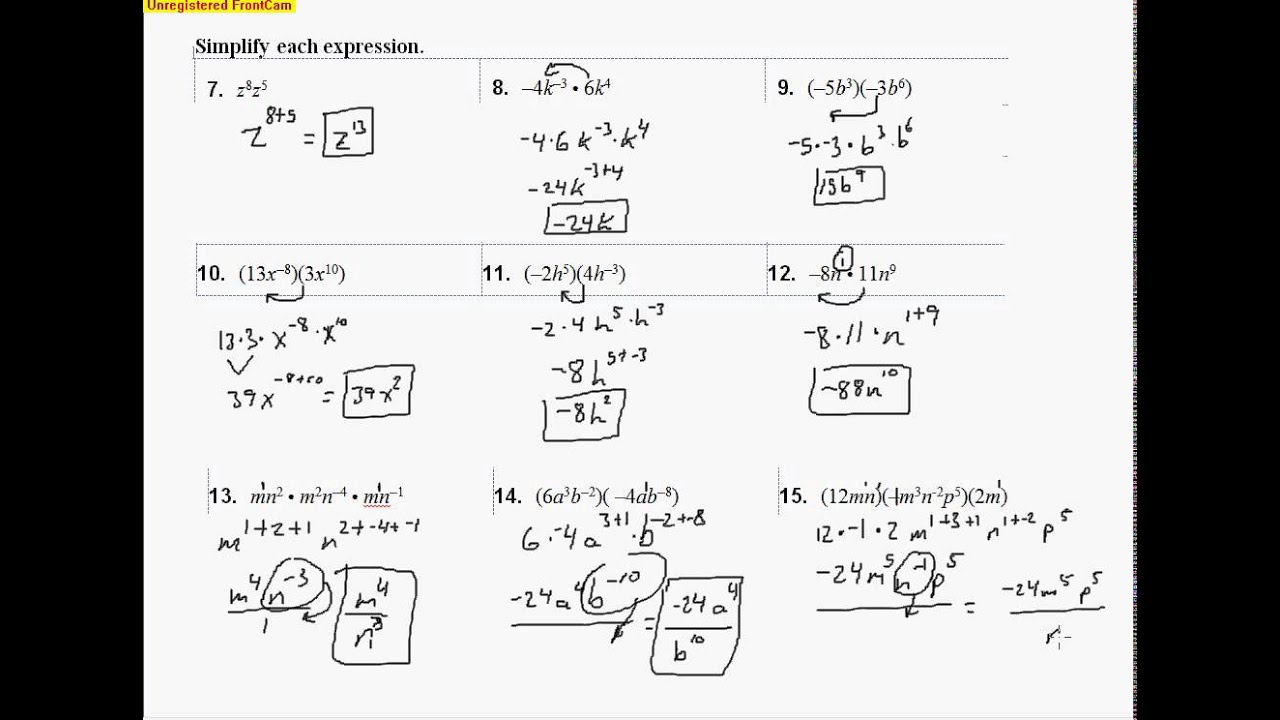 Unregistered FrontCam
Simplify each expression.
7. z⁸z⁵
z⁸⁺⁵ = z¹³
8. –4k⁻³ • 6k⁴
-4·6 k⁻³·k⁴
-24k⁻³⁺⁴
-24k
9. (–5b³)(–3b⁶)
-5·-3·b³·b⁶
15b⁹
10. (13x⁻⁸)(3x¹⁰)
13·3·x⁻⁸·x¹⁰
39x⁻⁸⁺¹⁰ = 39x²
11. (–2h⁵)(4h⁻³)
-2·4 h⁵·h⁻³
-8h⁵⁺⁻³
-8h²
12. –8n¹ • 11n⁹
-8·11·n¹⁺⁹
-88n¹⁰
13. m¹n² • m²n⁻⁴ • m¹n⁻¹
m¹⁺²⁺¹ n²⁺⁻⁴⁺⁻¹
m⁴n⁻³
1
m⁴
n³
14. (6a³b⁻²)( –4a¹b⁻⁸)
6·-4a³⁺¹·b⁻²⁺⁻⁸
-24a⁴b⁻¹⁰ = -24a⁴
b¹⁰
15. (12mn¹)(–1m³n⁻²p⁵)(2m¹)
12·-1·2 m¹⁺³⁺¹ n¹⁺⁻² p⁵
-24m⁵n⁻¹p⁵ = -24m⁵p⁵